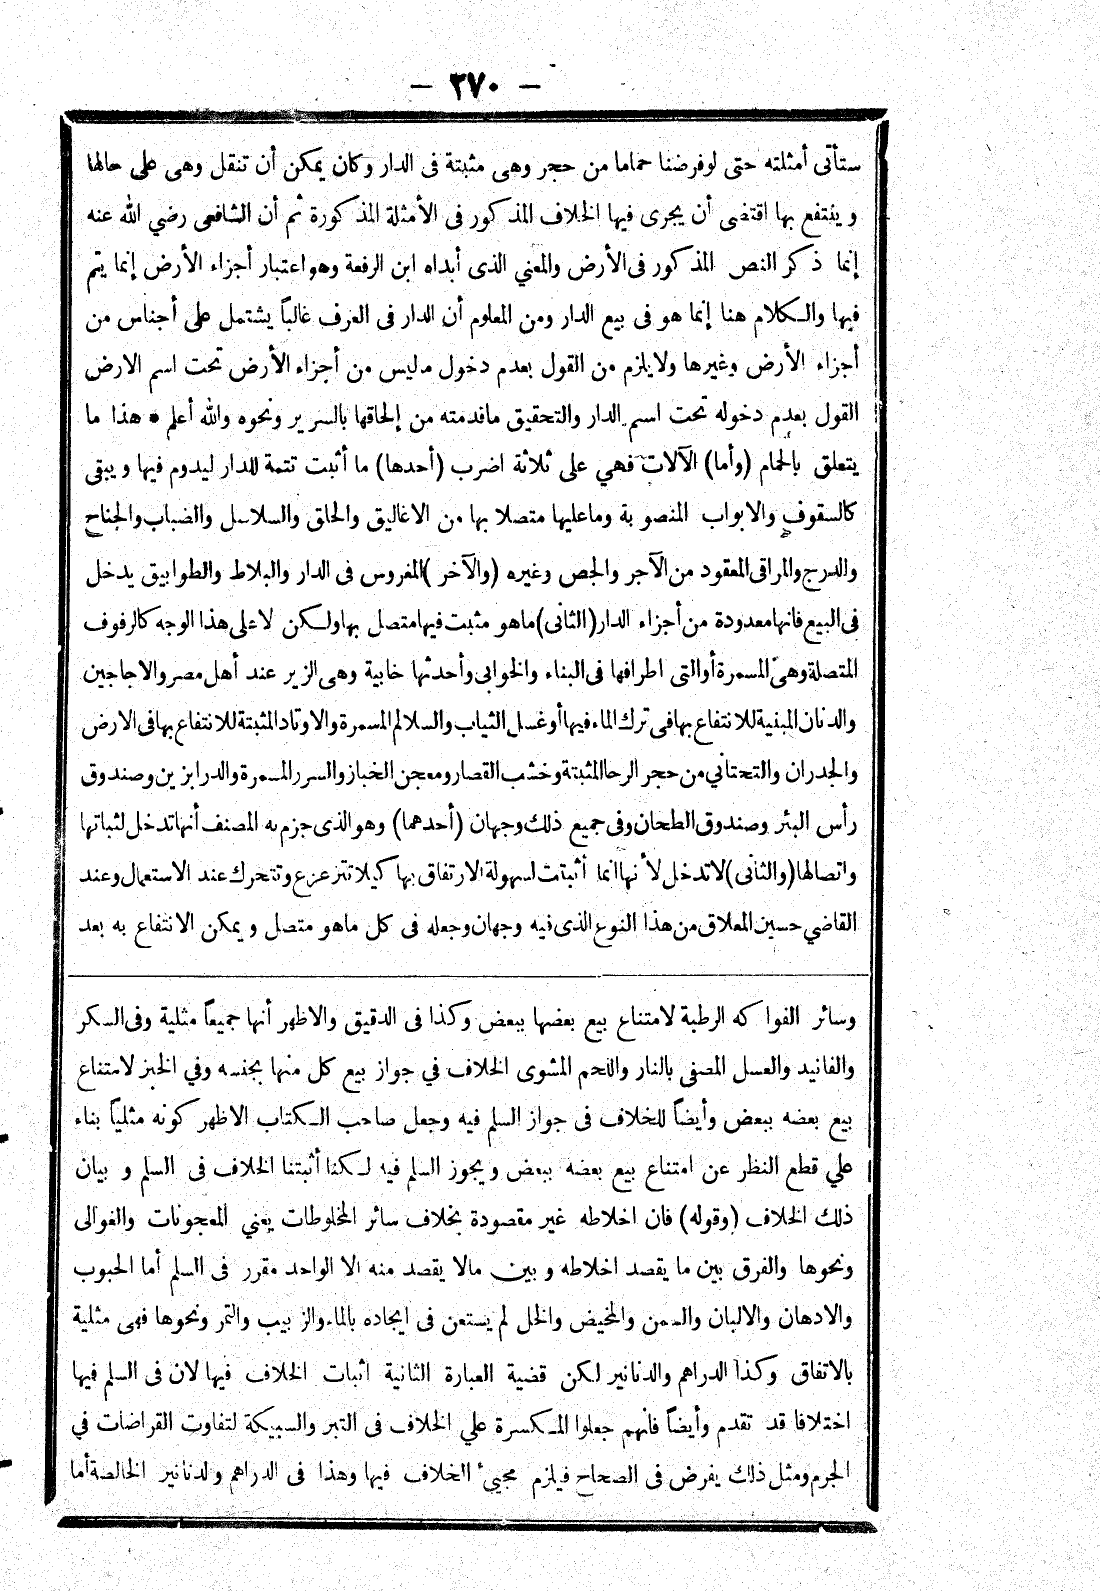 — ٣٧٠ —
ستأتى أمثلته حتى لوفرضنا حماما من حجر وهى مثبتة فى الدار وكان يمكن أن تنقل وهى على حالها
وينتفع بها اقتضى أن يجرى فيها الخلاف المذكور فى الأمثلة المذكورة ثم أن الشافعى رضي الله عنه
إنما ذكر النص المذكور فى الأرض والمعني الذى أبداه ابن الرفعة وهو اعتبار أجزاء الأرض إنما يتم
فيها والكلام هنا إنما هو فى بيع الدار ومن المعلوم أن الدار فى العرف غالباً يشتمل على أجناس من
أجزاء الأرض وغيرها ولا يلزم من القول بعدم دخول ماليس من أجزاء الأرض تحت اسم الارض
القول بعدم دخوله تحت اسم الدار والتحقيق ماقدمته من إلحاقها بالسرير ونحوه والله أعلم * هذا ما
يتعلق بالحمام (وأما) الآلات فهي على ثلاثة اضرب (أحدها) ما أثبت تتمة للدار ليدوم فيها ويبقى
كالسقوف والابواب المنصوبة وماعليها متصلا بها من الاغاليق والحلق والسلاسل والضباب والجناح
والدرج والمراقى المعقود من الآجر والجص وغيره (والآخر) المغروس فى الدار والبلاط والطوابيق يدخل
فى البيع فانها معدودة من أجزاء الدار (الثانى) ماهو مثبت فيها متصل بها ولكن لا على هذا الوجه كالرفوف
المتصلة وهى المسمرة أو التى اطرافها فى البناء والخوابى وأحدثها خابية وهى الزير عند أهل مصر والاجاجين
والدنان المبنية للانتفاع بها فى ترك الماء فيها أو غسل الثياب والسلالم المسمرة والاوتاد المثبتة للانتفاع بها فى الارض
والجدران والتحتاني من حجر الرحا المثبتة وخشب القصار ومعجن الخباز والسرر المسمرة والدرابزين وصندوق
رأس البئر وصندوق الطحان وفى جميع ذلك وجهان (أحدهما) وهو الذى جزم به المصنف أنها تدخل لثباتها
واتصالها (والثانى) لاتدخل لأنها انما أثبتت لسهولة الارتفاق بها كيلا تتزعزع وتتحرك عند الاستعمال وعند
القاضي حسين المعلاق من هذا النوع الذى فيه وجهان وجعله فى كل ماهو متصل ويمكن الانتفاع به بعد
وسائر الفواكه الرطبة لامتناع بيع بعضها ببعض وكذا فى الدقيق والاظهر أنها جميعاً مثلية وفى السكر
والفانيد والعسل المصفى بالنار واللحم المشوى الخلاف في جواز بيع كل منها بجنسه وفي الخبز لامتناع
بيع بعضه ببعض وأيضاً للخلاف فى جواز السلم فيه وجعل صاحب الكتاب الاظهر كونه مثلياً بناء
علي قطع النظر عن امتناع بيع بعضه ببعض ويجوز السلم فيه لكنا أثبتنا الخلاف فى السلم و بيان
ذلك الخلاف (وقوله) فان اخلاطه غير مقصودة بخلاف سائر المخلوطات يعني المعجونات والغوالى
ونحوها والفرق بين ما يقصد اخلاطه وبين مالا يقصد منه الا الواحد مقرر فى السلم أما الحبوب
والادهان والالبان والسمن والمخيض والخل لم يستعن فى ايجاده بالماء والزبيب والتمر ونحوها فهى مثلية
بالاتفاق وكذا الدراهم والدنانير لكن قضية العبارة الثانية اثبات الخلاف فيها لان فى السلم فيها
اختلافا قد تقدم وأيضاً فانهم جعلوا المكسرة علي الخلاف فى التبر والسبيكة لتفاوت القراضات في
الجرم ومثل ذلك يفرض فى الصحاح فيلزم مجيئ الخلاف فيها وهذا فى الدراهم والدنانير الخالصة أما